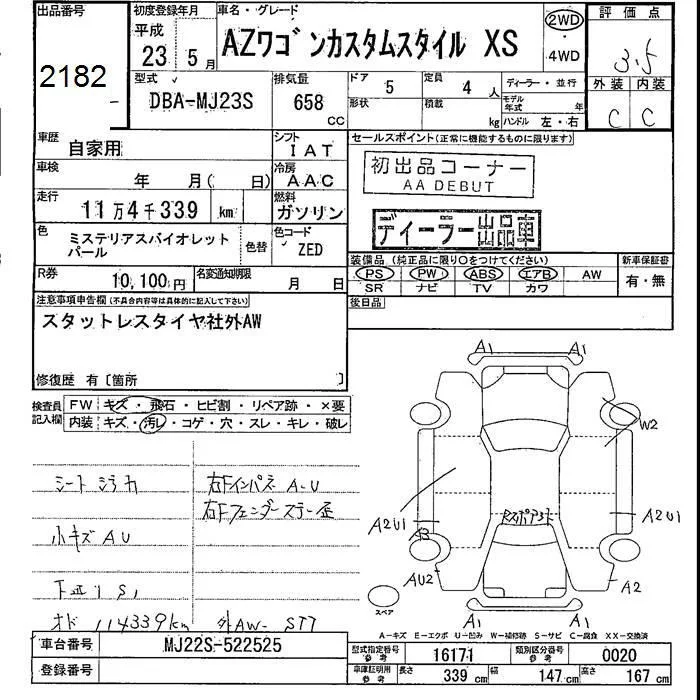 出品番号
2182
初度登録年月
平成 23年 5月
車名・グレード
AZワゴンカスタムスタイル XS
2WD
・4WD
評価点
3.5
外装 内装
C C
型式
DBA-MJ23S
排気量
658 CC
ドア 5
定員 4人
形状
積載 kg
ディーラー・並行
モデル年式 年
ハンドル 左・右
車歴
自家用
シフト
IAT
車検
年 月( 日)
冷房
AAC
走行
11万4千339 km
燃料
ガソリン
色
ミステリアスバイオレットパール
色替
色コード
ZED
R券
10,100円
名変通知期限
月 日
セールスポイント(正常に機能するものに限ります)
初出品コーナー
AA DEBUT
ディーラー出品車
装備品 (純正品に限り〇をつけてください)
PS・PW・ABS・エアB・AW
SR・ナビ・TV・カワ
新車保証書
有・無
後日品
注意事項申告欄 (不具合内容等は具体的に記入して下さい)
スタットレスタイヤ社外AW
修復歴 有〔箇所 〕
検査員記入欄
FW キズ・飛石・ヒビ割・リペア跡・×要
内装 キズ・汚レ・コゲ・穴・スレ・キレ・破レ
右Fインパネ A-U
右Fフェンダーステー歪
小キズ AU
下
S1
114339km
外AW-
A1 A1
W2
A2U1
A3
A2U1
AU2
A2
スペア
A1 A1
A-キズ E-エクボ U-凹み W-補修跡 S-サビ C-腐食 XX-交換済
車台番号
MJ22S-522525
登録番号
型式指定番号 参考
16171
類別区分番号 参考
0020
車庫証明用 参考
長さ 339 cm
幅 147 cm
高さ 167 cm